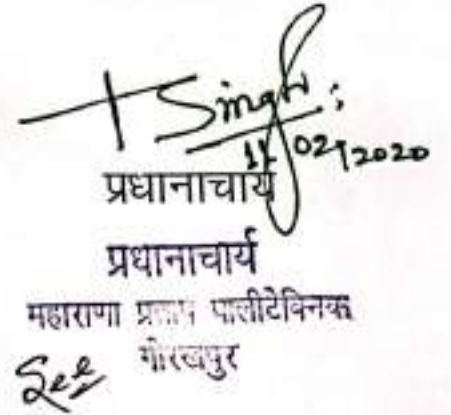 Singh
11/02/2020
प्रधानाचार्य
प्रधानाचार्य
महाराणा प्रताप पालीटेक्निक
गोरखपुर